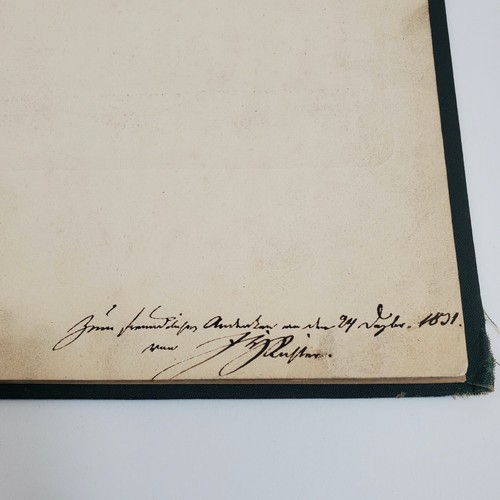 Zum freundlichen Andenken an den 24 Dezbr. 1831.
von